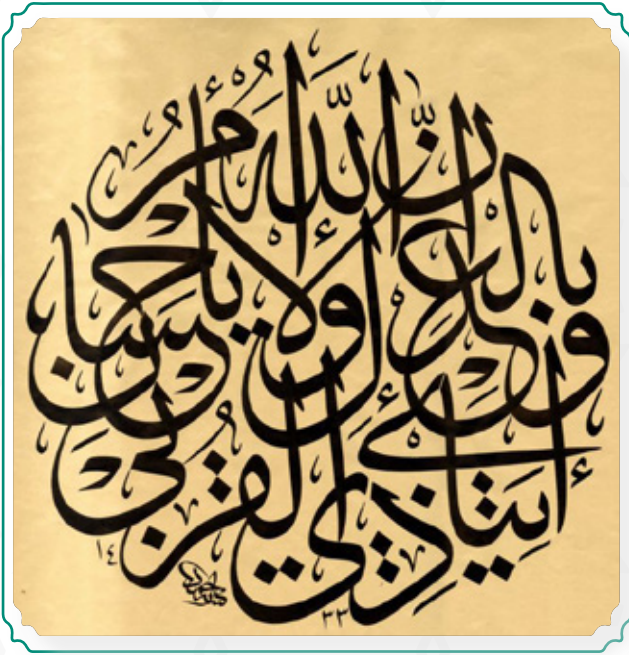 إِنَّ اللّٰهَ يَأْمُرُ
بِالْعَدْلِ وَالْإِحْسَانِ
وَإِيتَاءِ ذِي الْقُرْبَىٰ
١٤
٣٣